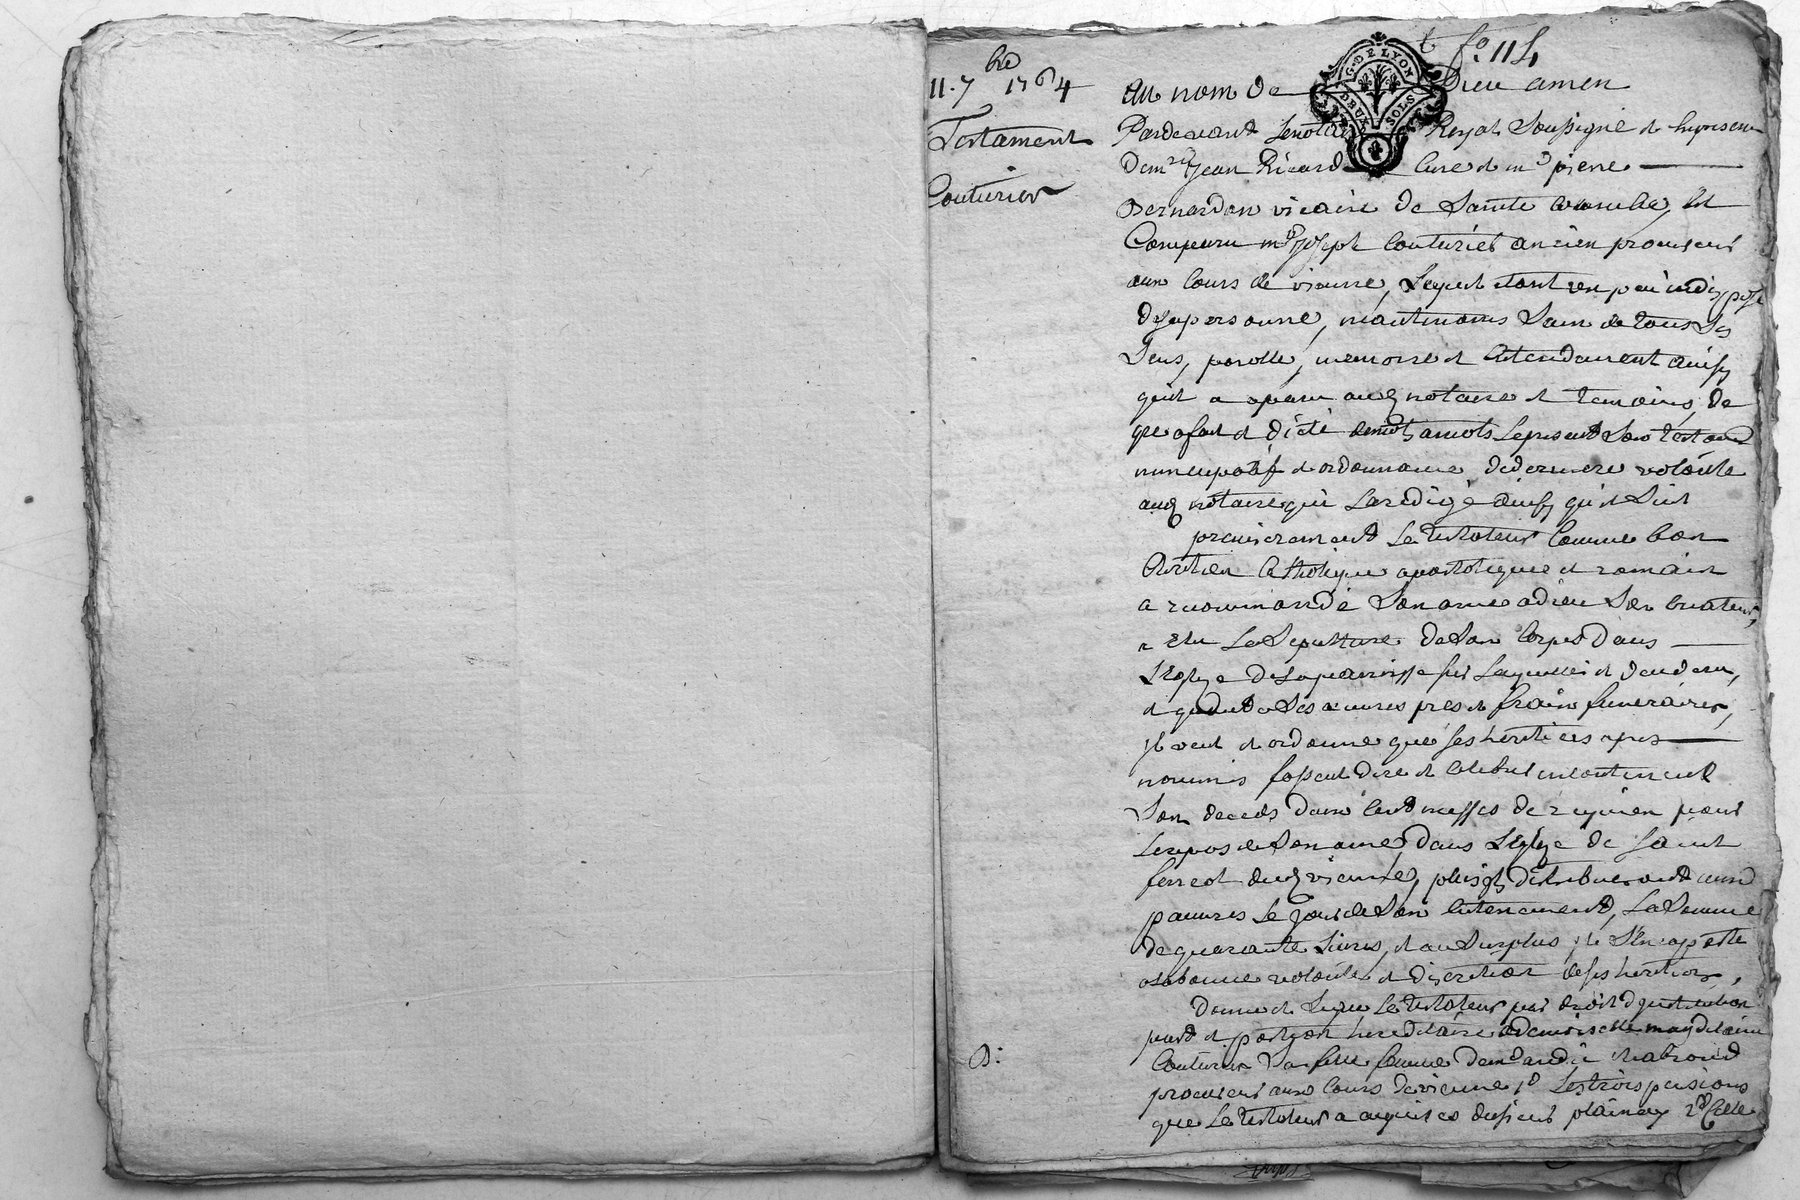 fo. 114
11. 7bre 1764
Testament
Couturier
G. DE LYON
DEUX SOLS
au nom de Dieu amen
Pardevant Le notaire Royal Soussigné et En presence
De mre Jean Ricard Curé et mre pierre
Bernardon vicaire de Sainte Colombe, Est
Comparu me Joseph Couturier ancien procureur
aux Cours de vienne, Lequel etant un peu indisposé
de sa personne, neantmoins Sain de tous Ses
Sens, parolle, memoire et Entendement ainsy
quil a aparu aud notaire et temoins, de
gre a fait et dicté de mots a mots Le present Son testament
nuncupatif et ordonnance de derniere volonté
aud notaire qui La redigé ainsy quil Suit
premierement Le testateur Comme bon
Chretien Catholique apostolique et romain
a recommandé Son ame a dieu Son Createur,
a Elu La Sepulture de Son Corps dans
L'Eglise de La paroisse sur Laquelle il decedera,
et quand a Ses œuvres pies et fraix funeraires,
il veut et ordonne que ses heritiers apres
nommés fassent dire et Celebrer incontinent
Son decés Deux Cent messes de requiem pour
Le repos de Son ame, dans L'Eglise de Saint
ferreol dud vienne, plus ils distribueront aux
pauvres Le jour de Son Enterrement, La Somme
de quarante Livres, et au Surplus il S'En raporte
a La bonne volonté et discretion de ses heritiers,
Donne et Legue Le testateur par droit d'institution
part et portion hereditaire a demoiselle magdelaine
Couturier Sa fille femme de me andré Chabroud
procureur aux Cours de vienne 1o Les trois pensions
que Le testateur a acquises du sieur 2o Celle
B: